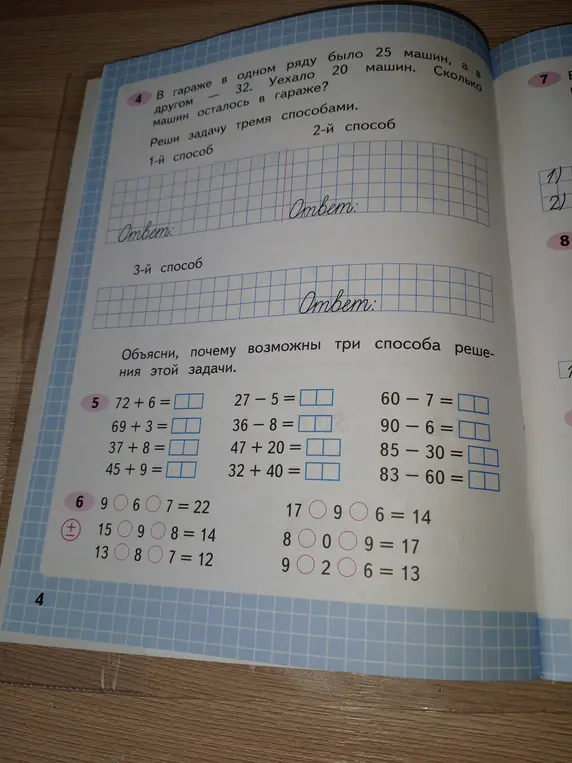 4 В гараже в одном ряду было 25 машин, а в
другом — 32. Уехало 20 машин. Сколько
машин осталось в гараже?
Реши задачу тремя способами.
1-й способ 2-й способ
Ответ: Ответ:
3-й способ
Ответ:
Объясни, почему возможны три способа реше-
ния этой задачи.
5 72 + 6 = 27 − 5 = 60 − 7 =
69 + 3 = 36 − 8 = 90 − 6 =
37 + 8 = 47 + 20 = 85 − 30 =
45 + 9 = 32 + 40 = 83 − 60 =
6 9 6 7 = 22 17 9 6 = 14
± 15 9 8 = 14 8 0 9 = 17
13 8 7 = 12 9 2 6 = 13
4
7
1)
2)
8